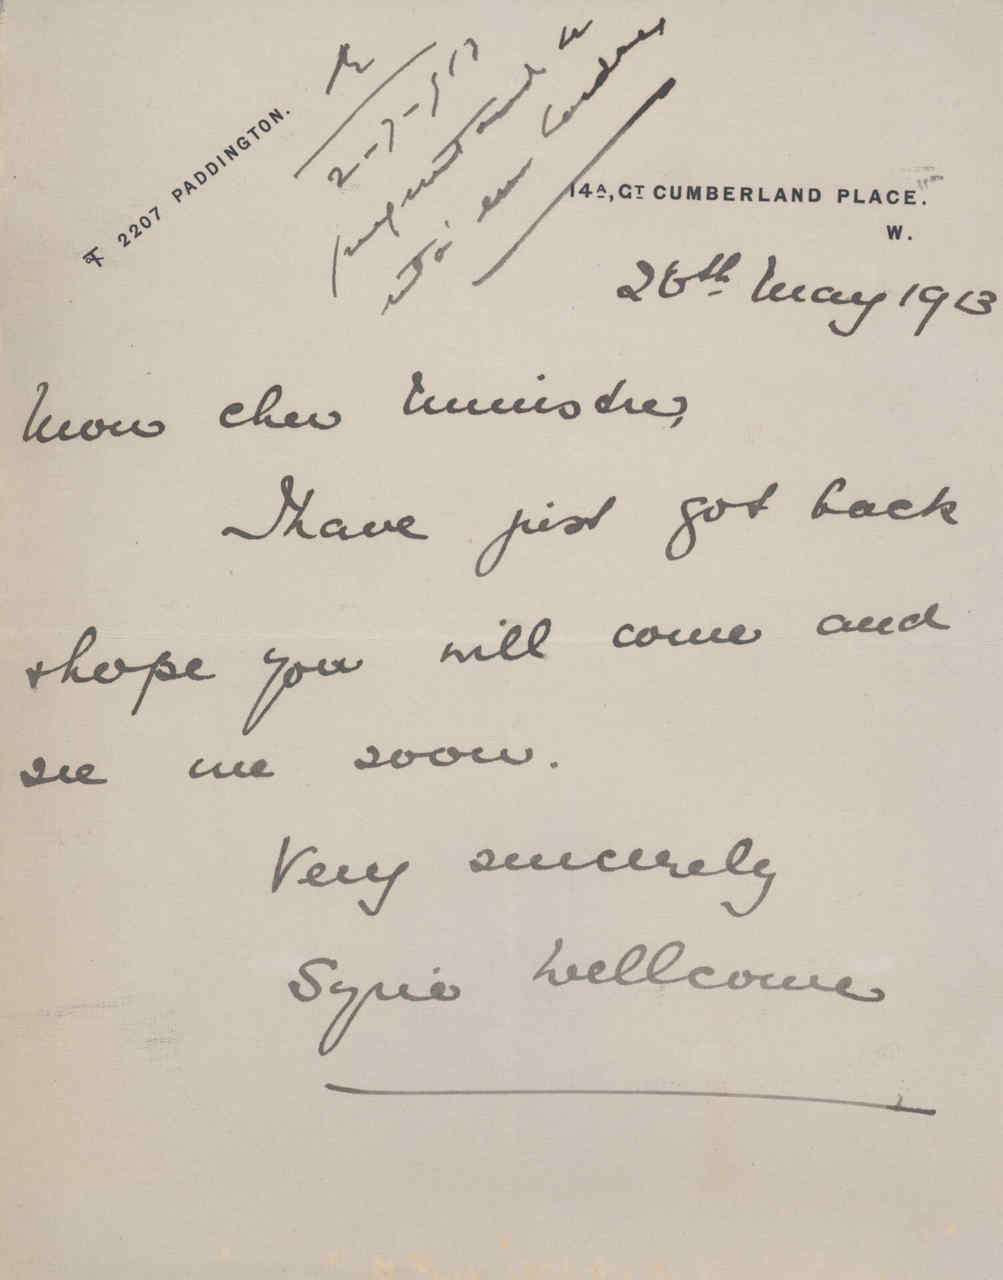 2207 PADDINGTON.
R
2-7-913
14A, GT CUMBERLAND PLACE.
W.
26th May 1913
Mon cher Ministre,
I have just got back
& hope you will come and
see me soon.
Very sincerely
Syrie Wellcome